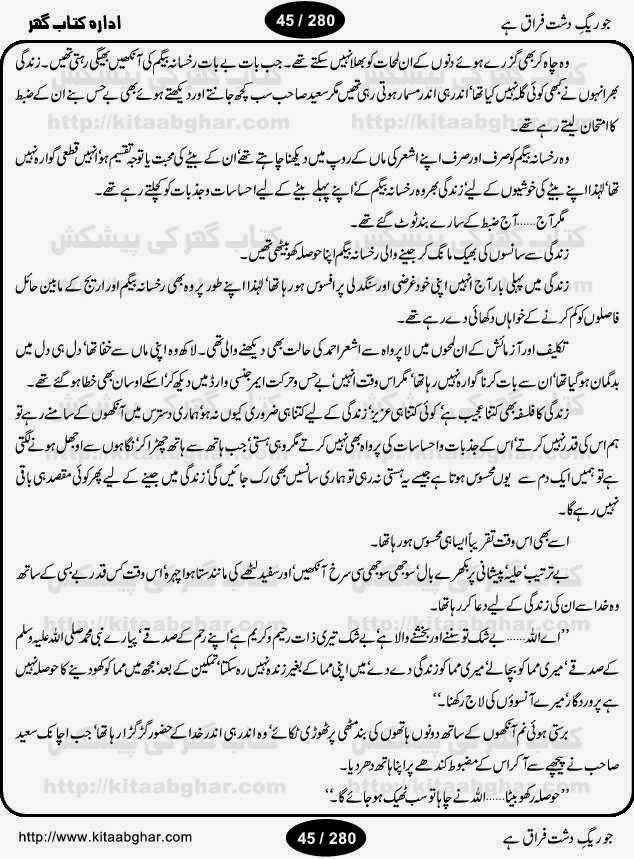 جو ریگِ دشت فراق ہے
45 / 280
ادارہ کتاب گھر
وہ چاہ کر بھی گزرے ہوئے دنوں کے ان لمحات کو بھلا نہیں سکتے تھے۔ جب بات بے بات رخسانہ بیگم کی آنکھیں بھیگی رہتی تھیں۔ زندگی
بھر انہوں نے کبھی کوئی گلہ نہیں کیا تھا‘ اندر ہی اندر مسمار ہوتی رہی تھیں مگر سعید صاحب سب کچھ جانتے اور دیکھتے ہوئے بھی بے حس بنے ان کے ضبط
کا امتحان لیتے رہے تھے۔
وہ رخسانہ بیگم کو صرف اور صرف اپنے اشعر کی ماں کے روپ میں دیکھنا چاہتے تھے‘ ان کے بیٹے کی محبت یا توجہ تقسیم ہو‘ انہیں قطعی گوارہ نہیں
تھا‘ لہٰذا اپنے بیٹے کی خوشیوں کے لیے‘ زندگی بھر وہ رخسانہ بیگم کے‘ اپنے پہلے بیٹے کے لیے احساسات و جذبات کو کچلتے رہے تھے۔
مگر آج...... آج ضبط کے سارے بند ٹوٹ گئے تھے۔
زندگی سے سانسوں کی بھیک مانگ کر جینے والی رخسانہ بیگم اپنا حوصلہ کھو بیٹھی تھیں۔
زندگی میں پہلی بار آج انہیں اپنی خود غرضی اور سنگدلی پر افسوس ہو رہا تھا‘ لہٰذا اپنے طور پر وہ بھی رخسانہ بیگم اور اریج کے مابین حائل
فاصلوں کو کم کرنے کے خواہاں دکھائی دے رہے تھے۔
تکلیف اور آزمائش کے ان لمحوں میں لا پرواہ سے اشعر احمد کی حالت بھی دیکھنے والی تھی۔ لاکھ وہ اپنی ماں سے خفا تھا‘ دل ہی دل میں
بدگمان ہو گیا تھا‘ ان سے بات کرنا گوارہ نہیں رہا تھا‘ مگر اس وقت انہیں‘ بے حس و حرکت ایمرجنسی وارڈ میں دیکھ کر اسکے اوسان بھی خطا ہو گئے تھے۔
زندگی کا فلسفہ بھی کتنا عجیب ہے‘ کوئی کتنا ہی عزیز‘ زندگی کے لیے کتنا ہی ضروری کیوں نہ ہو‘ ہماری دسترس میں آنکھوں کے سامنے رہے تو
ہم اس کی قدر نہیں کرتے‘ اس کے جذبات و احساسات کی پرواہ بھی نہیں کرتے مگر وہی ہستی‘ جب ہاتھ سے ہاتھ چھڑا کر نگاہوں سے اوجھل ہونے لگتی
ہے تو ہمیں ایک دم سے یوں محسوس ہوتا ہے جیسے یہ ہستی نہ رہی تو ہماری سانسیں بھی رک جائیں گی‘ زندگی میں جینے کے لیے پھر کوئی مقصد ہی باقی
نہیں رہے گا۔
اسے بھی اس وقت تقریباً ایسا ہی محسوس ہو رہا تھا۔
بے ترتیب‘ حلیہ‘ پیشانی پر بکھرے بال‘ سوجھی سوجھی سی سرخ آنکھیں‘ اور سفید لٹھے کی مانند ستا ہوا چہرہ‘ اس وقت کس قدر بے بسی کے ساتھ
وہ خدا سے ان کی زندگی کے لیے دعا کر رہا تھا۔
’’اے اللہ...... بے شک تو سننے اور بخشنے والا ہے‘ بے شک تیری ذات رحیم و کریم ہے‘ اپنے رحم کے صدقے‘ پیارے نبی محمد صلی اللہ علیہ وسلم
کے صدقے‘ میری مما کو بچا لے‘ میری مما کو زندگی دے دے‘ میں اپنی مما کے بغیر زندہ نہیں رہ سکتا‘ تمکین کے بعد‘ مجھ میں مما کو کھو دینے کا حوصلہ نہیں
ہے پروردگار‘ میرے آنسوؤں کی لاج رکھنا۔‘‘
برستی ہوئی نم آنکھوں کے ساتھ دونوں ہاتھوں کی بند مٹھی پر ٹھوڑی ٹکائے‘ وہ اندر ہی اندر خدا کے حضور گڑگڑا رہا تھا‘ جب اچانک سعید
صاحب نے پیچھے سے آ کر اس کے مضبوط کندھے پر اپنا ہاتھ دھر دیا۔
’’حوصلہ رکھو بیٹا...... اللہ نے چاہا تو سب ٹھیک ہو جائے گا۔‘‘
کتاب گھر کی پیشکش
http://kitaabghar.com
http://www.kitaabghar.com
45 / 280
جو ریگِ دشت فراق ہے